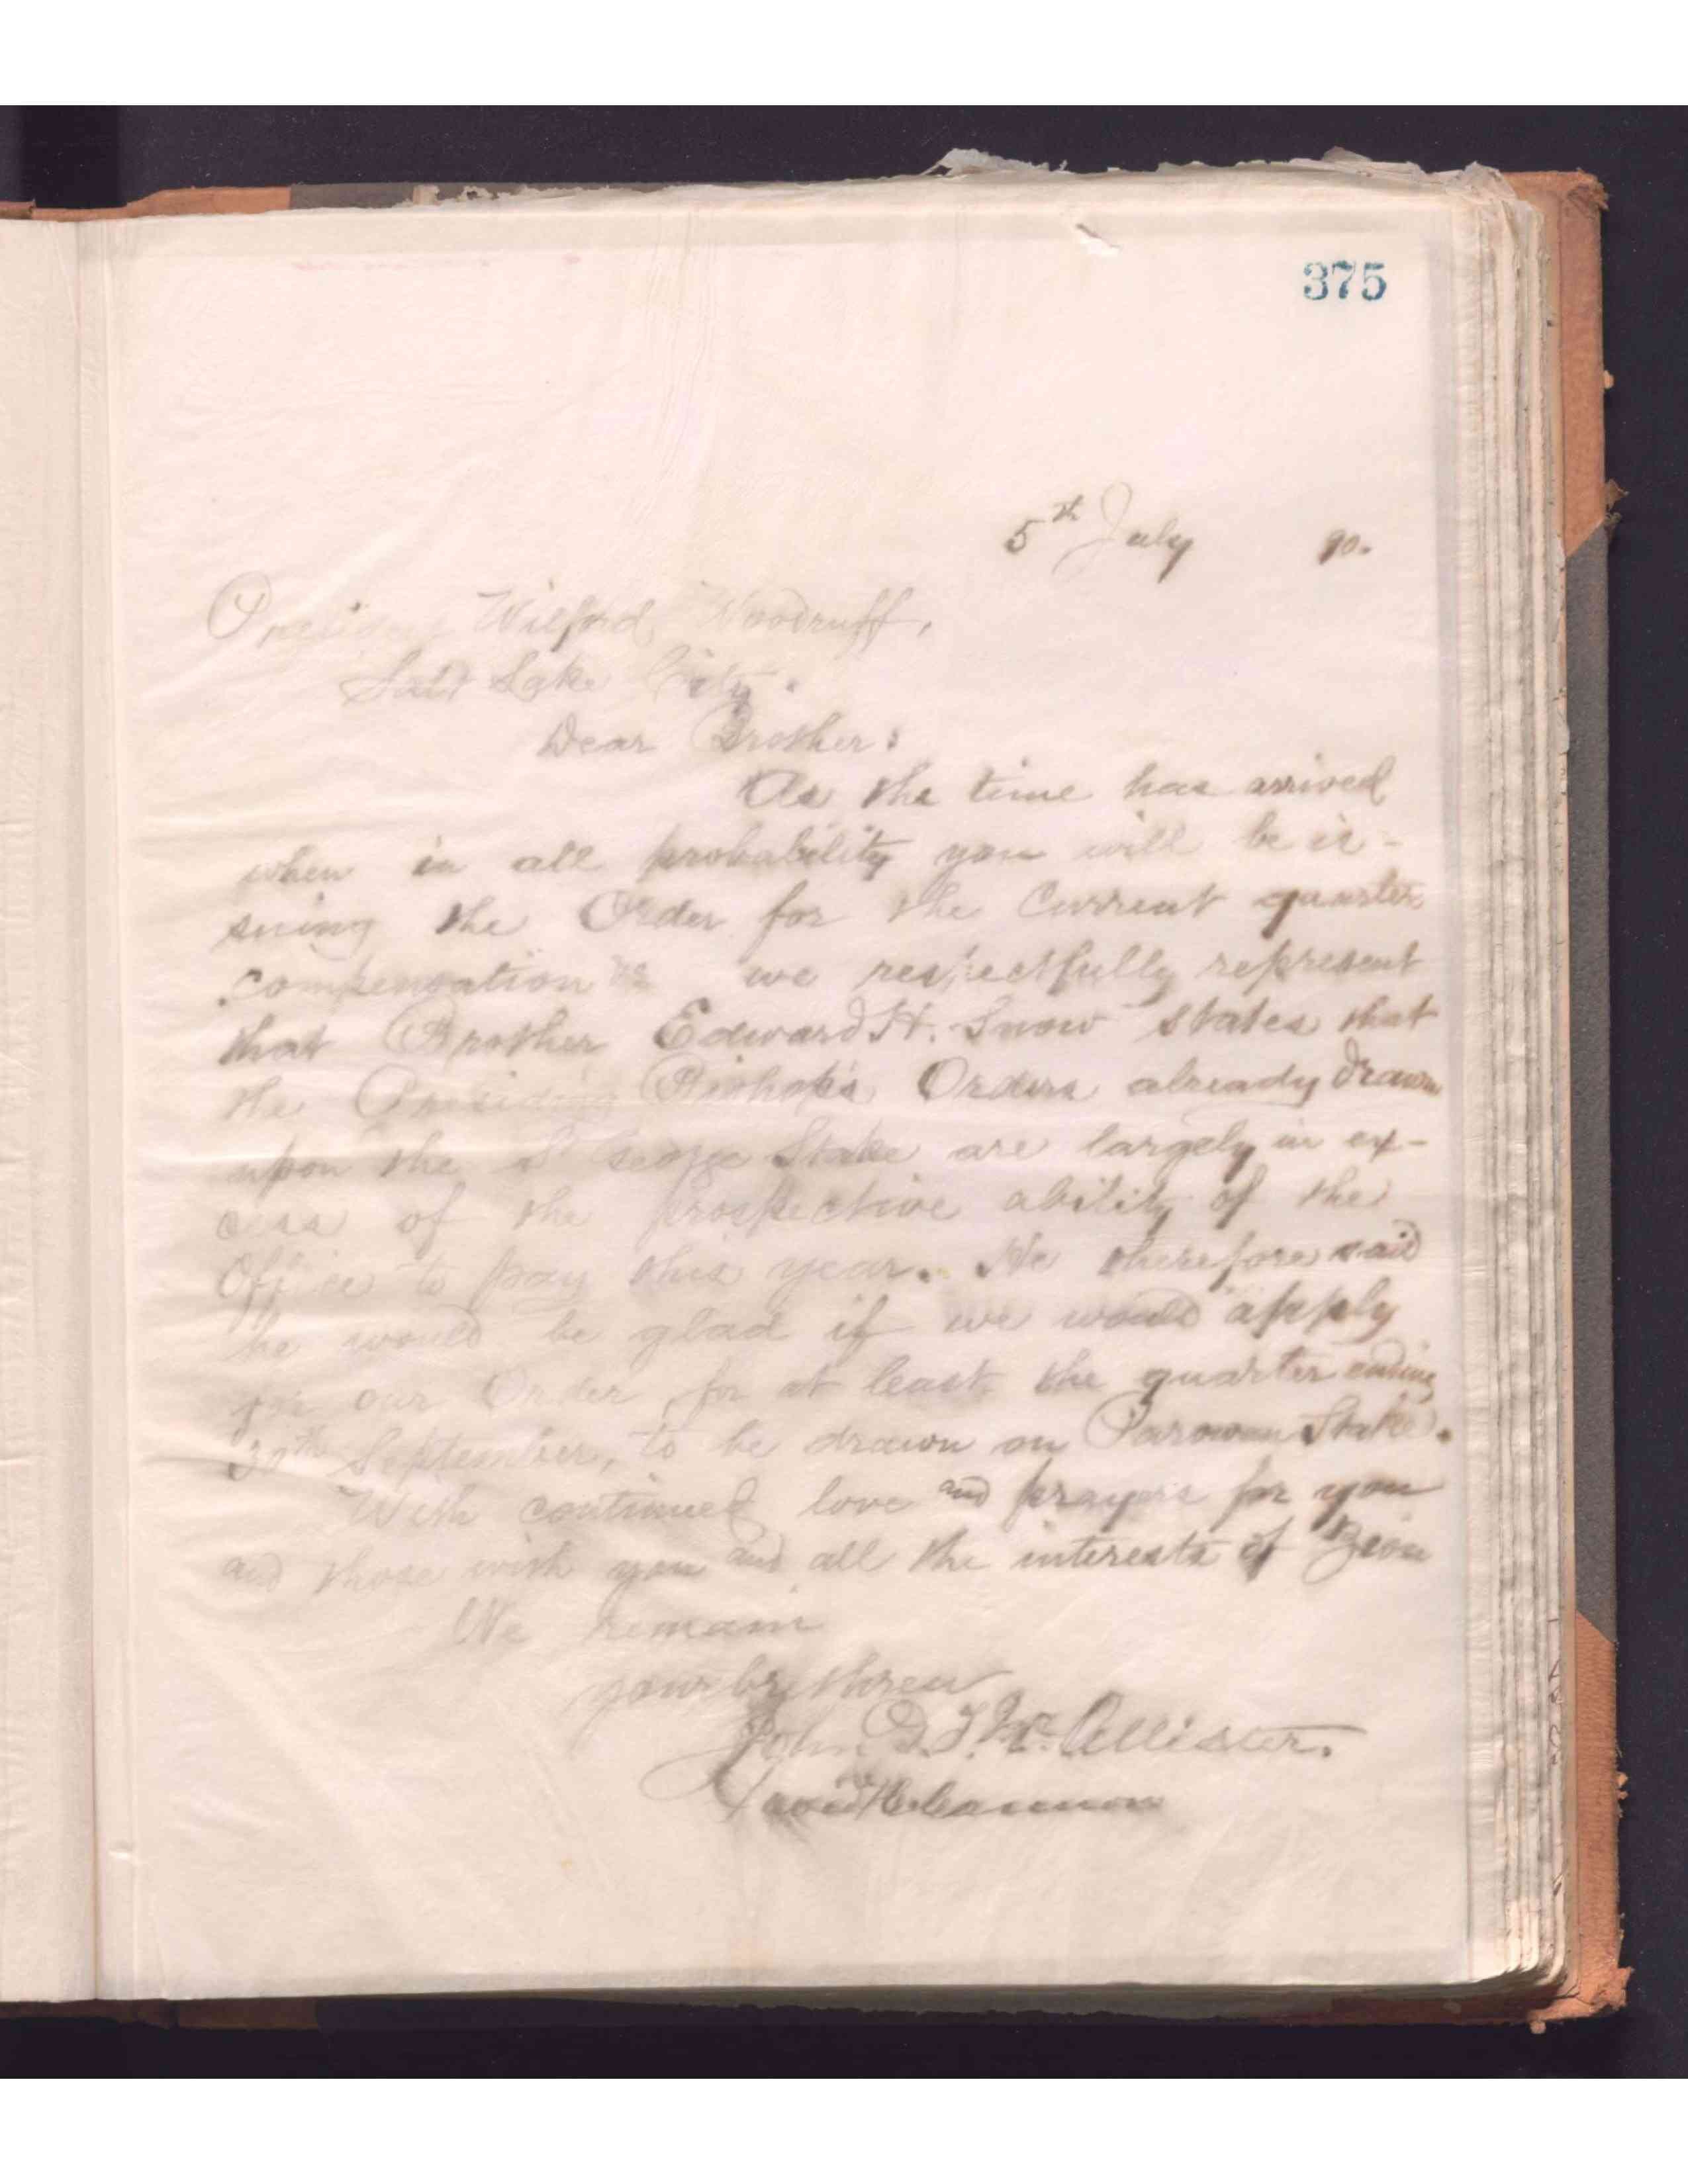 375
5th July 90.
President Wilford Woodruff,
Salt Lake City.
Dear Brother:
As the time has arrived
when in all probability you will be is-
suing the Order for the Current quarter
compensation &c we respectfully represent
that Brother Edward H. Snow states that
the Presiding Bishop's Orders already drawn
upon the St George Stake are largely in ex-
cess of the prospective ability of the
Office to pay this year. He therefore said
he would be glad if we would apply
for our Order, for at least the quarter ending
30th September, to be drawn on Parowan Stake.
With continued love and prayers for you
and those with you and all the interests of Zion
We remain
your brethren
John D. T. McAllister.
David H. Cannon